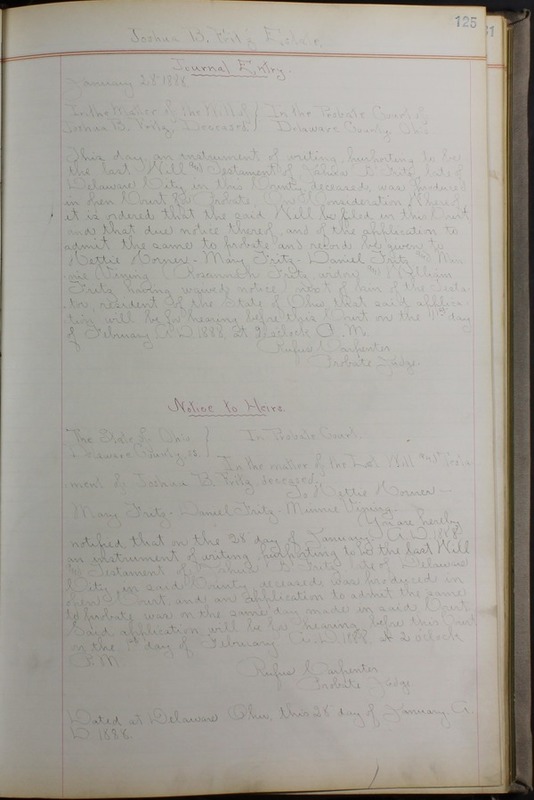 125
Joshua B. Fritz Estate.
Journal Entry.
January 28th 1888
In the Matter of the Will of / In the Probate Court of
Joshua B. Fritz Deceased / Delaware County, Ohio
This day an instrument of writing, purporting to be
the last Will and Testament of Joshua B. Fritz, late of
Delaware City in this County, deceased, was produced
in open Court for Probate. On Consideration whereof
it is ordered that the said Will be filed in this Court
and that due notice thereof, and of the application to
admit the same to probate and record be given to
Mettie Horner - Mary Fritz - Daniel Fritz and Min-
nie Vining Rosannah Fritz widow and William
Fritz having waived notice next of kin of the Testa-
tor, resident of the State of Ohio that said applica-
tion will be for hearing before this Court on the 1st day
of February A.D. 1888, at 2 o'clock P.M.
Rufus Carpenter
Probate Judge.
Notice to Heirs
The State of Ohio / In Probate Court.
Delaware County, ss. /
In the matter of the Last Will and Testa-
ment of Joshua B. Fritz, deceased.
To Mettie Horner -
Mary Fritz - Daniel Fritz - Minnie Vining.
You are hereby
notified that on the 28 day of January A.D. 1888
an instrument of writing, purporting to be the last Will
and Testament of Joshua B. Fritz late of Delaware
City in said County, deceased was produced in
open Court, and an application to admit the same
to probate was on the same day made in said Court.
Said application will be for hearing before this Court
on the 1st day of February A.D. 1888 at 2 o'clock
P.M.
Rufus Carpenter
Probate Judge
Dated at Delaware Ohio, this 28 day of January A.
D. 1888.